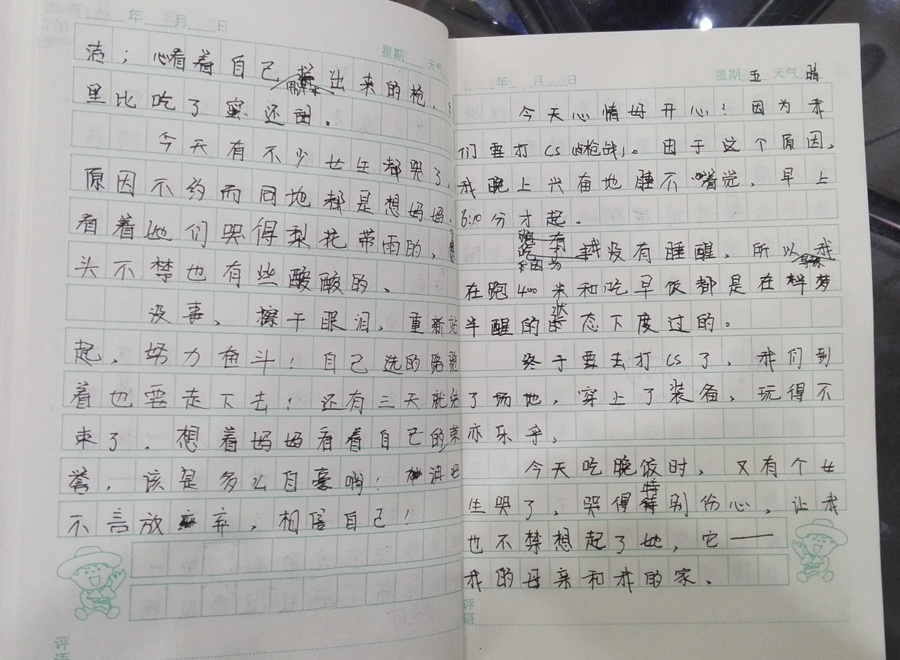 年 月 日
星期 天气
洁；心看着自己擦出来的枪，
里比吃了蜜还甜。
今天有不少女生都哭了，
原因不约而同地都是想妈妈，
看着她们哭得梨花带雨的，
头不禁也有些酸酸的。
没事，擦干眼泪，重新站
起，努力奋斗！自己选的路跪
着也要走下去！还有三天就结
束了．想着妈妈看着自己的荣
誉，该是多么自豪啊！永
不言放弃，相信自己！
评语
年 月 日
星期 五 天气 晴
今天心情好开心！因为我
们要打CS（真枪战）。由于这个原因，
我晚上兴奋地睡不着觉，早上
6:10分才起．
因为没有睡醒，所以我
在跑400米和吃早饭都是在半梦
半醒的状态下度过的。
终于要去打CS了，我们到
了场地，穿上了装备，玩得不
亦乐乎，
今天吃晚饭时，又有个女
生哭了，哭得特别伤心，让我
也不禁想起了她，它——
我的母亲和我的家．
评语